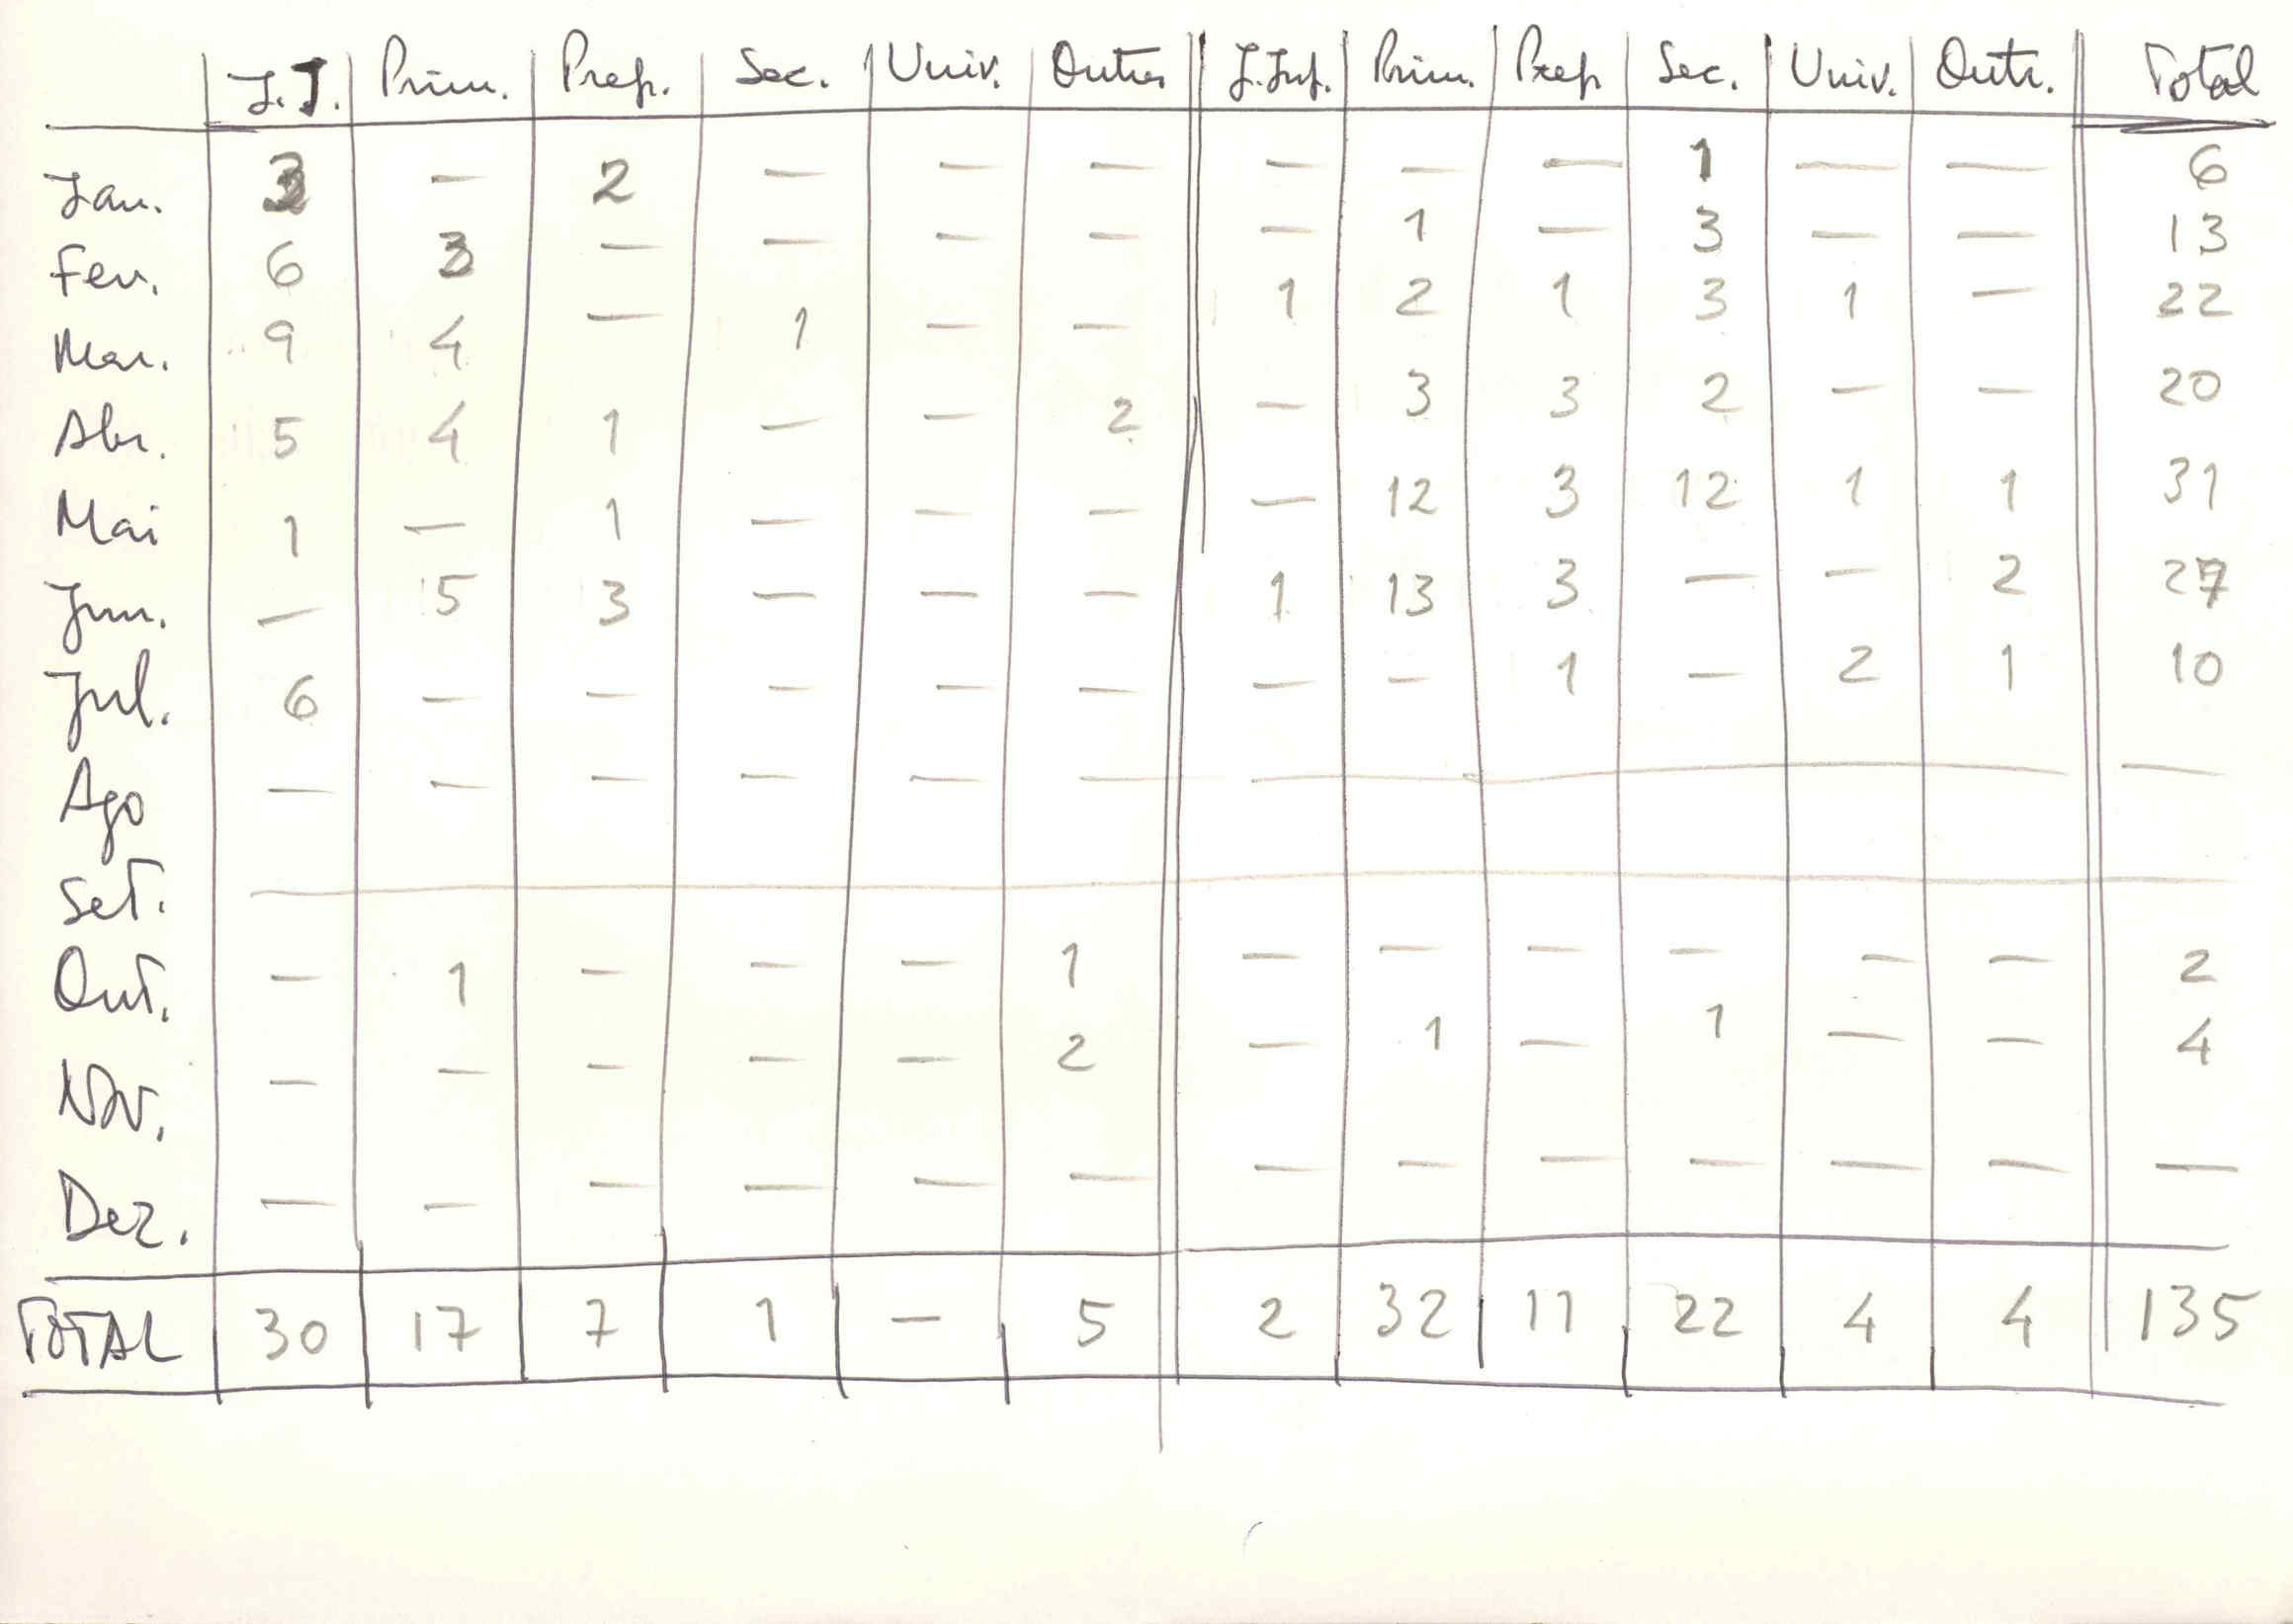 J.I. Prim. Prep. Sec. Univ. Outros J.Inf. Prim. Prep Sec. Univ. Outr. Total
Jan. 3 — 2 — — — — — — 1 — — 6
Fev. 6 3 — — — — — 1 — 3 — — 13
Mar. 9 4 — 1 — — 1 2 1 3 1 — 22
Abr. 5 4 1 — — 2 — 3 3 2 — — 20
Mai 1 — 1 — — — — 12 3 12 1 1 31
Jun. — 5 3 — — — 1 13 3 — — 2 27
Jul. 6 — — — — — — — 1 — 2 1 10
Ago — — — — — — — —
Set. —
Out. — 1 — — — 1 — — — — — — 2
Nov. — — — — — 2 — 1 — 1 — — 4
Dez. — — — — — — — — — — — — —
TOTAL 30 17 7 1 — 5 2 32 11 22 4 4 135